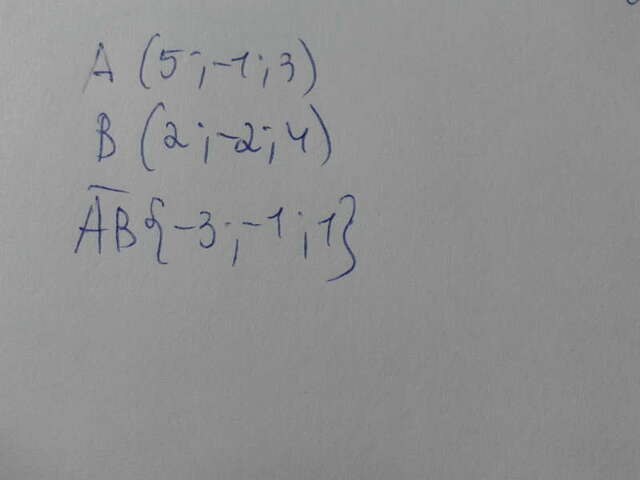 A (5;-1;3)
B (2;-2;4)
A̅B̅{-3;-1;1}